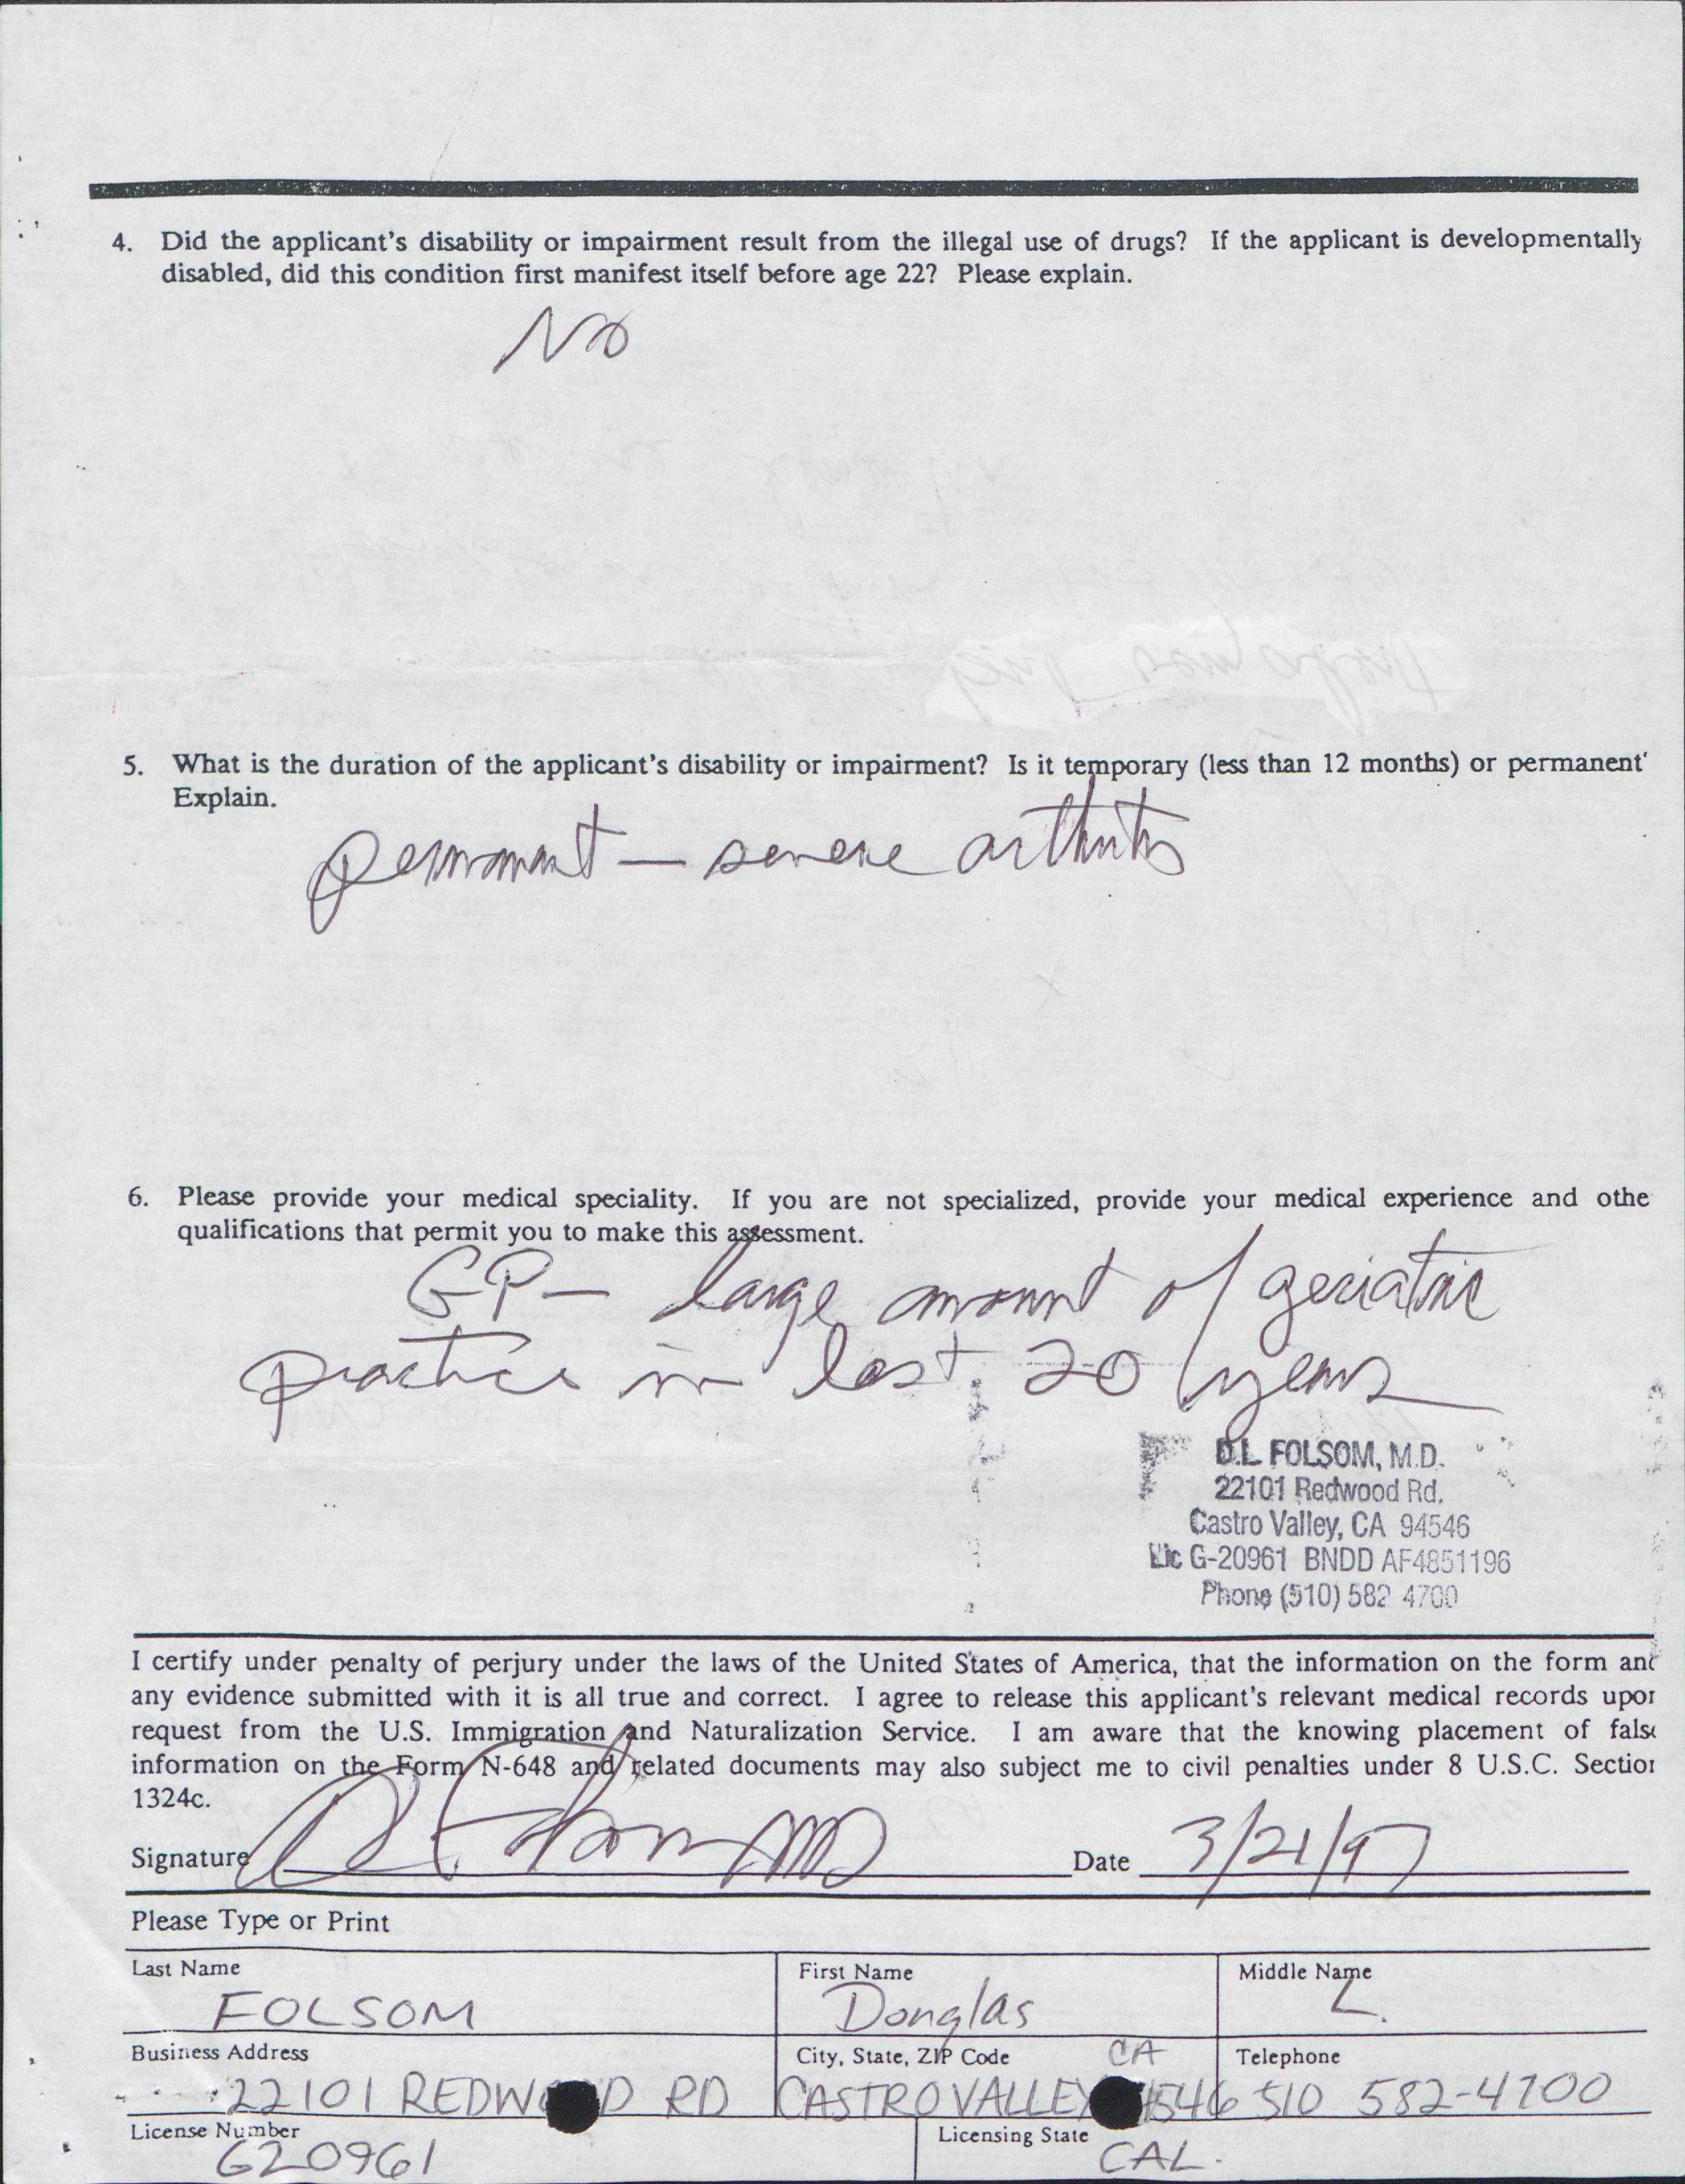 4. Did the applicant's disability or impairment result from the illegal use of drugs? If the applicant is developmentally
disabled, did this condition first manifest itself before age 22? Please explain.
No
5. What is the duration of the applicant's disability or impairment? Is it temporary (less than 12 months) or permanent
Explain.
permanent — severe arthritis
6. Please provide your medical speciality. If you are not specialized, provide your medical experience and othe
qualifications that permit you to make this assessment.
GP — large amount of geriatric
practice in last 20 years
D.L. FOLSOM, M.D.
22101 Redwood Rd.
Castro Valley, CA 94546
Lic G-20961 BNDD AF4851196
Phone (510) 582 4700
I certify under penalty of perjury under the laws of the United States of America, that the information on the form and
any evidence submitted with it is all true and correct. I agree to release this applicant's relevant medical records upon
request from the U.S. Immigration and Naturalization Service. I am aware that the knowing placement of false
information on the Form N-648 and related documents may also subject me to civil penalties under 8 U.S.C. Section
1324c.
Signature D Folsom MD Date 3/21/97
Please Type or Print
Last Name First Name Middle Name
FOLSOM Donglas L.
Business Address City, State, ZIP Code CA Telephone
22101 REDWOOD RD CASTRO VALLEY 94546 510 582-4700
License Number Licensing State
G20961 CAL.